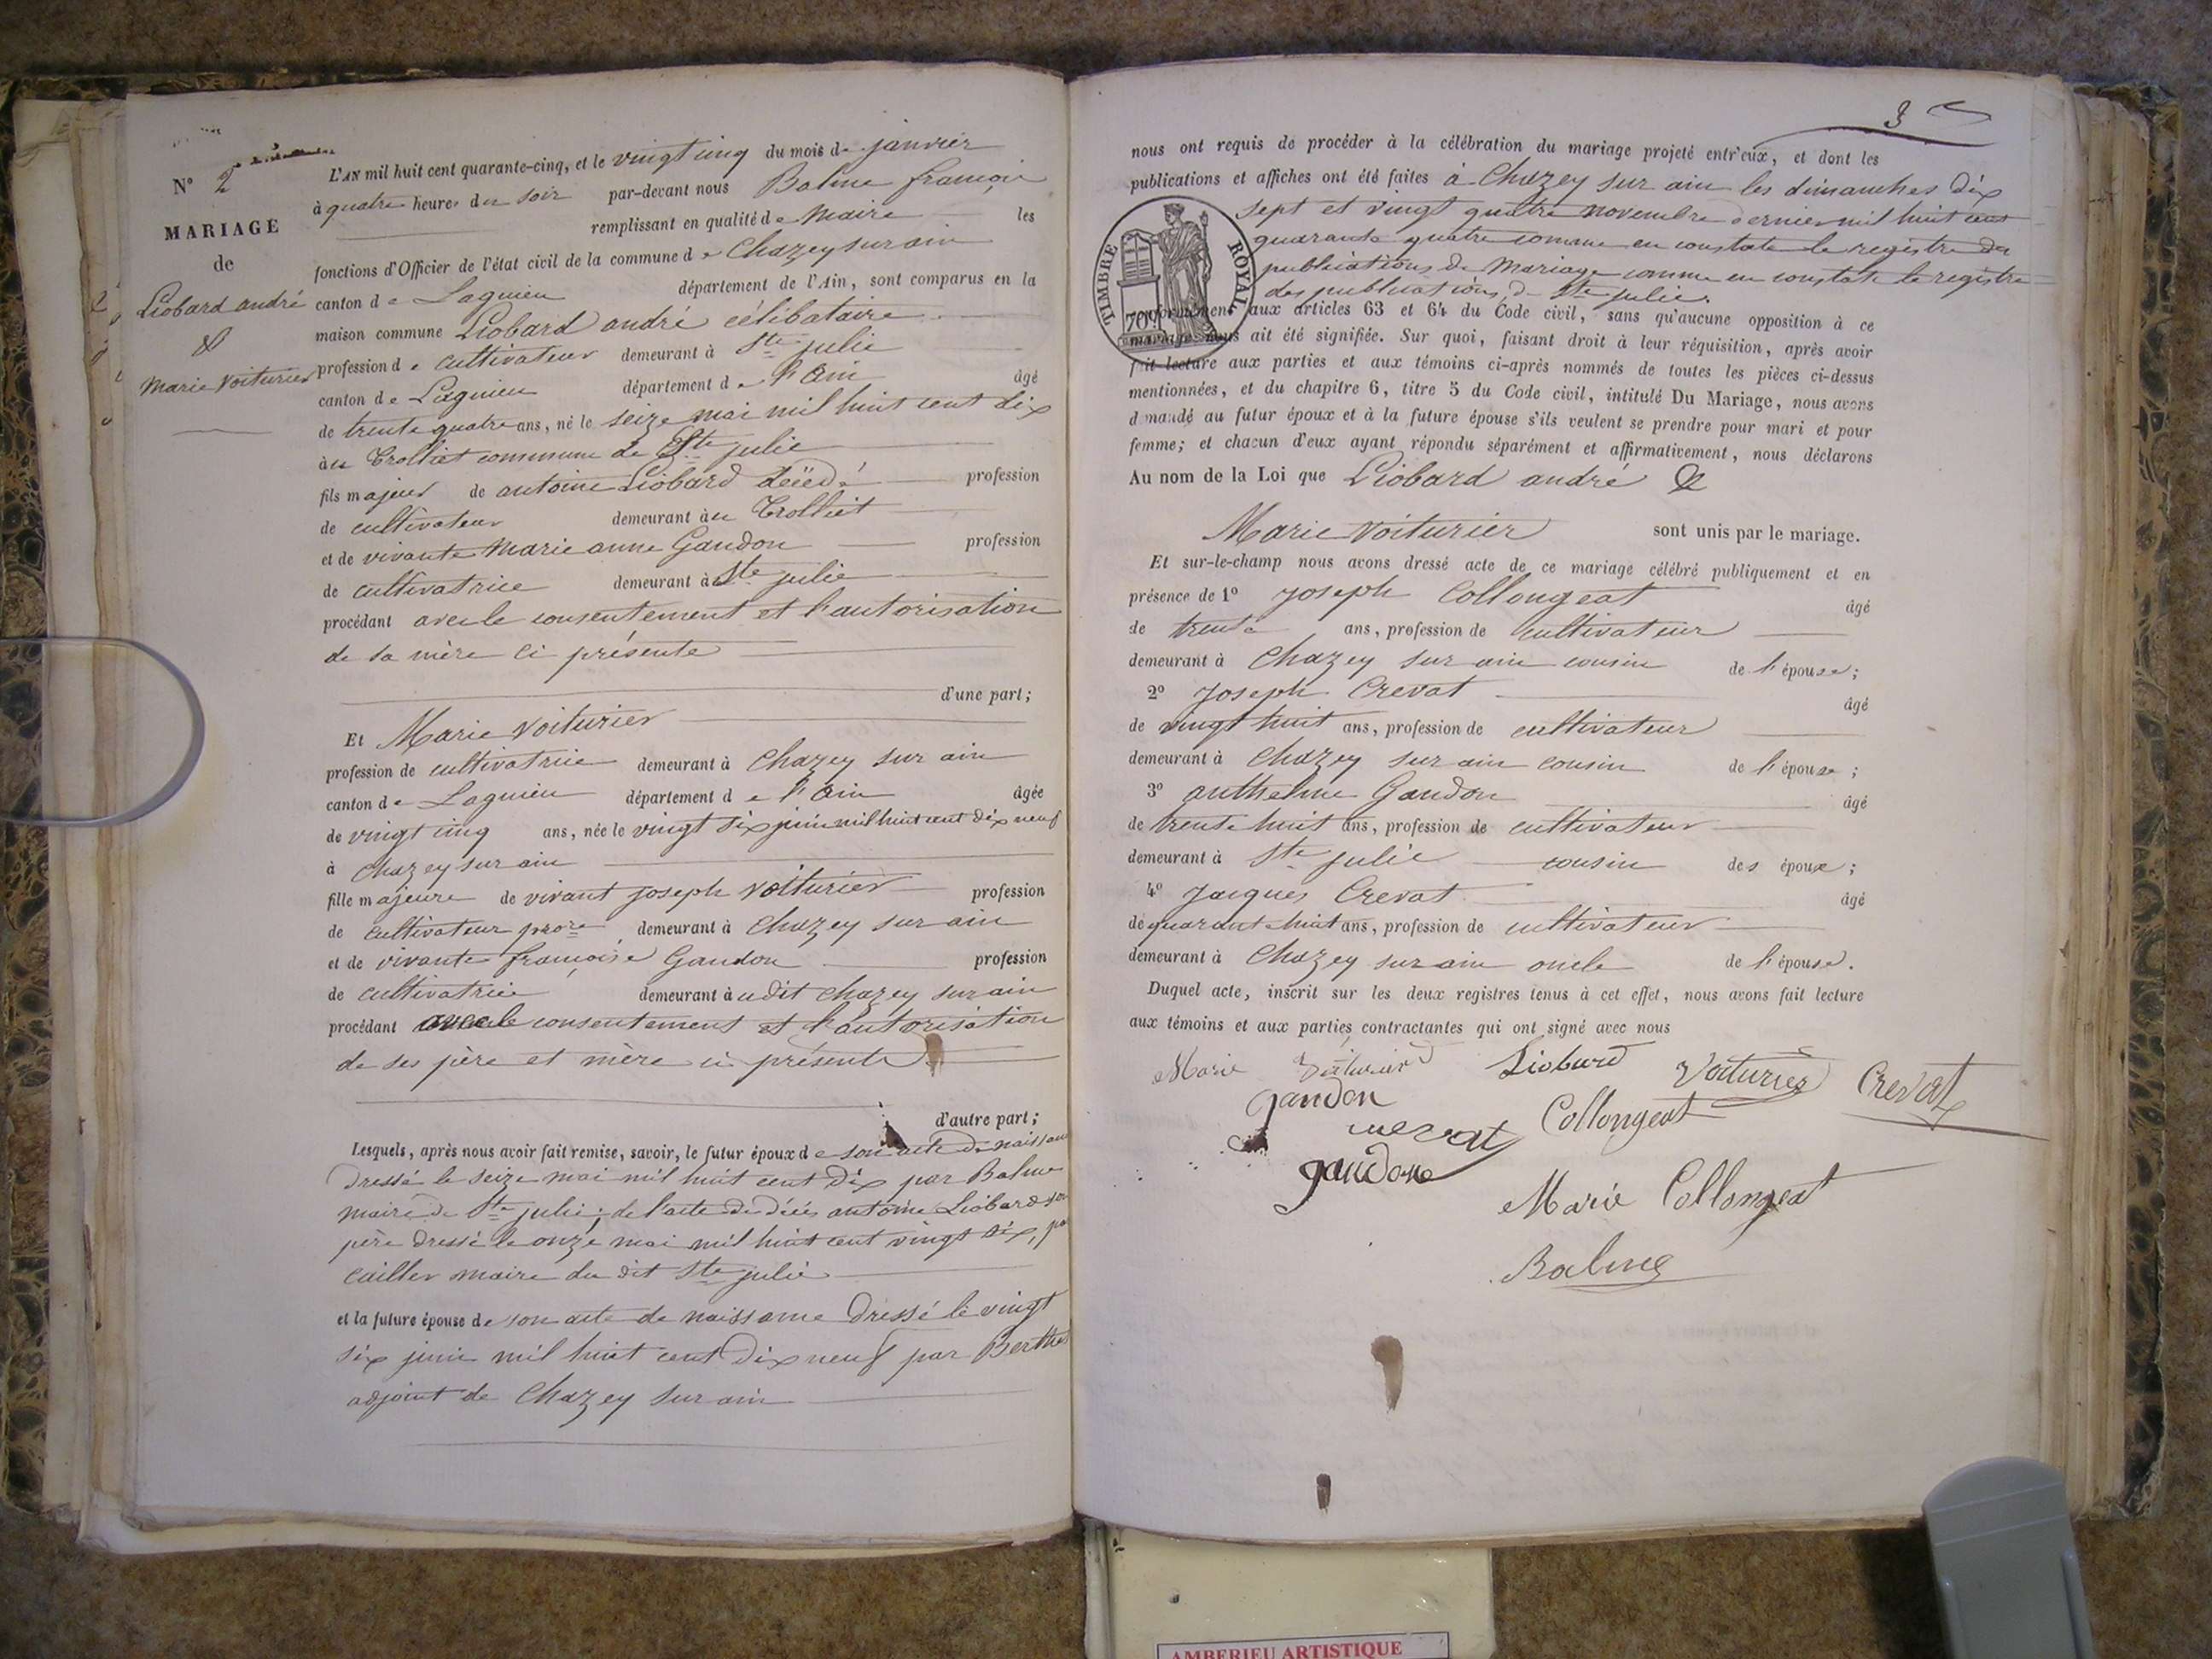 N° 2
MARIAGE
de
Liobard andré
&
Marie Voiturier
L'AN mil huit cent quarante-cinq, et le vingt cinq du mois de janvier
à quatre heures du soir par-devant nous Balme françois
remplissant en qualité de Maire les
fonctions d'Officier de l'état civil de la commune de Chazey sur ain
canton de Lagnieu département de l'Ain, sont comparus en la
maison commune Liobard andré célibataire
profession de cultivateur demeurant à Ste julie
canton de Lagnieu département de l'Ain âgé
de trente quatre ans, né le seize mai mil huit cent dix
au Trolliet commune de Ste julie
fils majeur de antoine Liobard décédé profession
de cultivateur demeurant au Trolliet
et de vivante Marie anne Gandon profession
de cultivatrice demeurant à Ste julie
procédant avec le consentement et l'autorisation
de sa mère ci présente
d'une part;
Et Marie Voiturier
profession de cultivatrice demeurant à Chazey sur ain
canton de Lagnieu département de l'Ain âgée
de vingt cinq ans, née le vingt six juin mil huit cent dix neuf
à Chazey sur ain
fille majeure de vivant joseph Voiturier profession
de cultivateur propre demeurant à Chazey sur ain
et de vivante françoise Gandon profession
de cultivatrice demeurant audit chazey sur ain
procédant avec le consentement et l'autorisation
de ses père et mère ci présents
d'autre part;
Lesquels, après nous avoir fait remise, savoir, le futur époux de son acte de naissance
dressé le seize mai mil huit cent dix par Balme
maire de Ste julie; de l'acte de décès antoine Liobard son
père dressé le onze mai mil huit cent vingt six, par
cailler maire du dit Ste julie
et la future épouse de son acte de naissance dressé le vingt
six juin mil huit cent dix neuf par Berthet
adjoint de Chazey sur ain
3
nous ont requis de procéder à la célébration du mariage projeté entr'eux, et dont les
publications et affiches ont été faites à Chazey sur ain les dimanches dix
sept et vingt quatre novembre dernier mil huit cent
quarante quatre comme en constate le registre des
publications de Mariage comme en constate le registre
des publications de Ste julie.
TIMBRE ROYAL
70
conformément aux articles 63 et 64 du Code civil, sans qu'aucune opposition à ce
mariage nous ait été signifiée. Sur quoi, faisant droit à leur réquisition, après avoir
fait lecture aux parties et aux témoins ci-après nommés de toutes les pièces ci-dessus
mentionnées, et du chapitre 6, titre 5 du Code civil, intitulé Du Mariage, nous avons
demandé au futur époux et à la future épouse s'ils veulent se prendre pour mari et pour
femme; et chacun d'eux ayant répondu séparément et affirmativement, nous déclarons
Au nom de la Loi que Liobard andré &
Marie Voiturier sont unis par le mariage.
Et sur-le-champ nous avons dressé acte de ce mariage célébré publiquement et en
présence de 1° joseph Collongeat âgé
de trente ans, profession de cultivateur
demeurant à Chazey sur ain cousin de l'épouse;
2° joseph Crevat âgé
de vingt huit ans, profession de cultivateur
demeurant à Chazey sur ain cousin de l'épouse;
3° anthelme Gandon âgé
de trente huit ans, profession de cultivateur
demeurant à Ste julie cousin des époux;
4° jacques Crevat âgé
de quarant huit ans, profession de cultivateur
demeurant à Chazey sur ain oncle de l'épouse.
Duquel acte, inscrit sur les deux registres tenus à cet effet, nous avons fait lecture
aux témoins et aux parties contractantes qui ont signé avec nous
Marie Voiturier Liobard Voiturier Crevat
gandon Collongeat
crevat
gandon
Marie Collongeat
Balme
AMBERIEU ARTISTIQUE